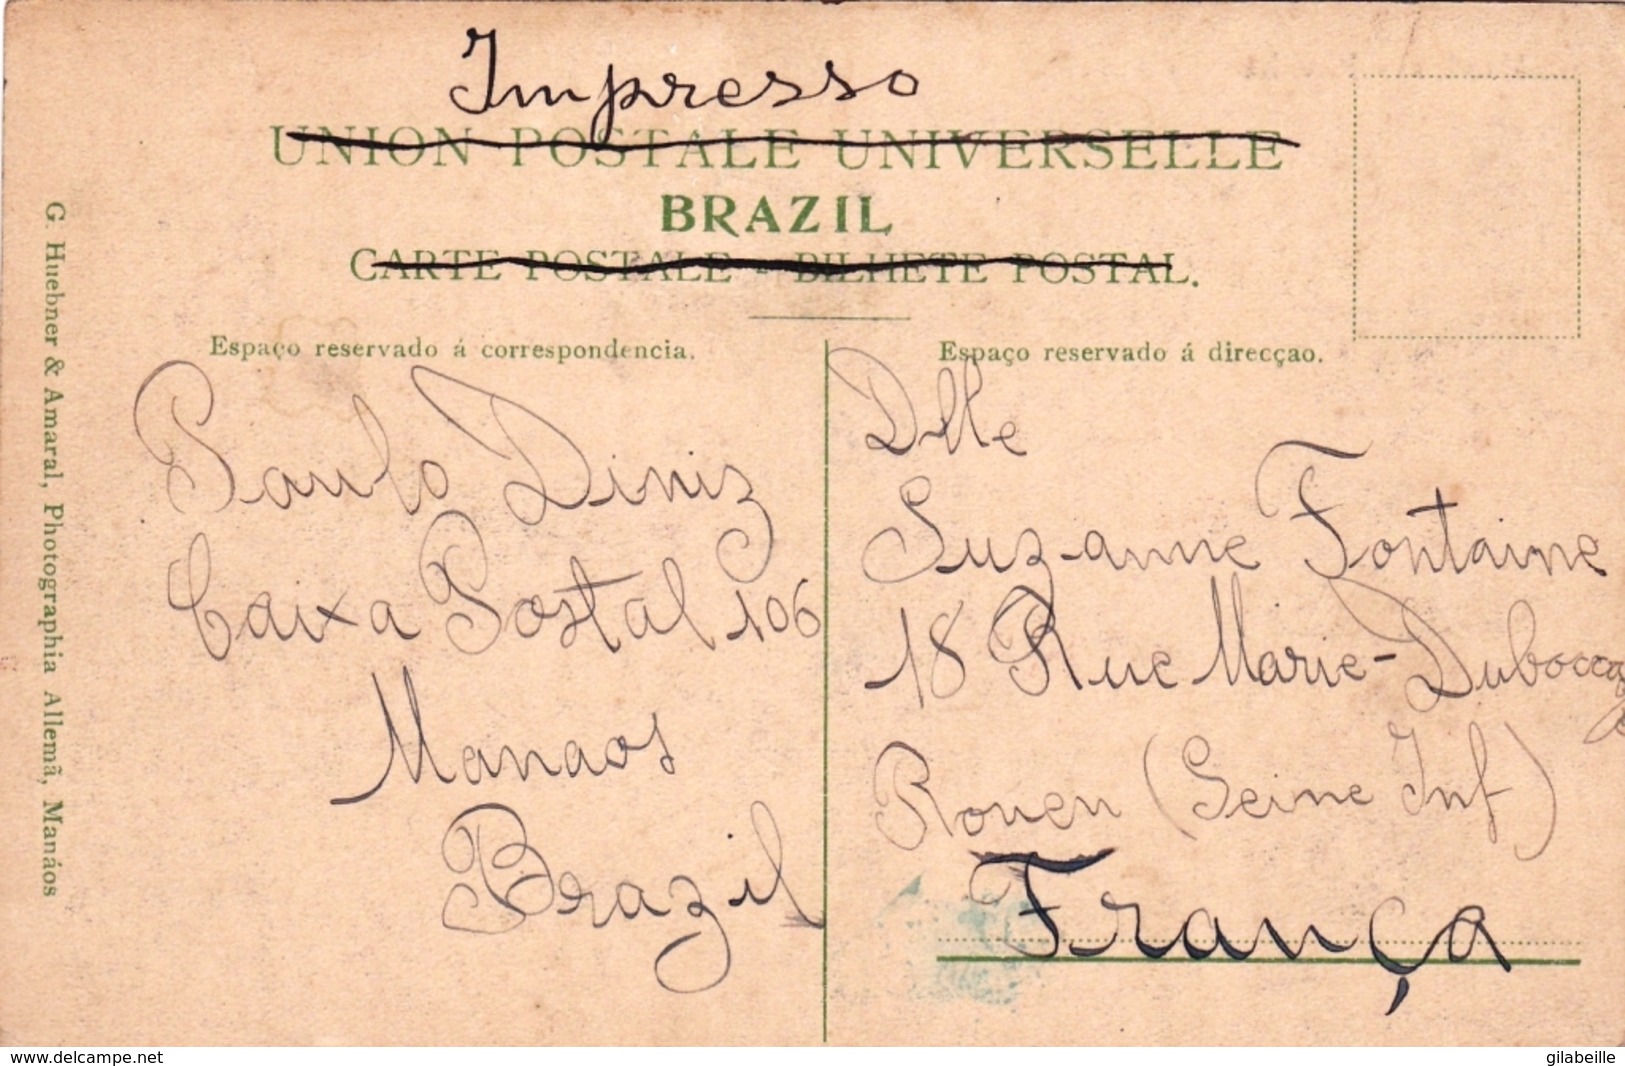 Impresso
UNION POSTALE UNIVERSELLE
BRAZIL
CARTE POSTALE - BILHETE POSTAL.
Espaço reservado á correspondencia.
Paulo Diniz
Caixa Postal 106
Manaos
Brazil
Espaço reservado á direcçao.
Dlle
Suzanne Fontaine
18 Rue Marie-Duboccage
Rouen (Seine Inf)
França
G. Huebner & Amaral, Photographia Allemã, Manáos
www.delcampe.net
gilabeille